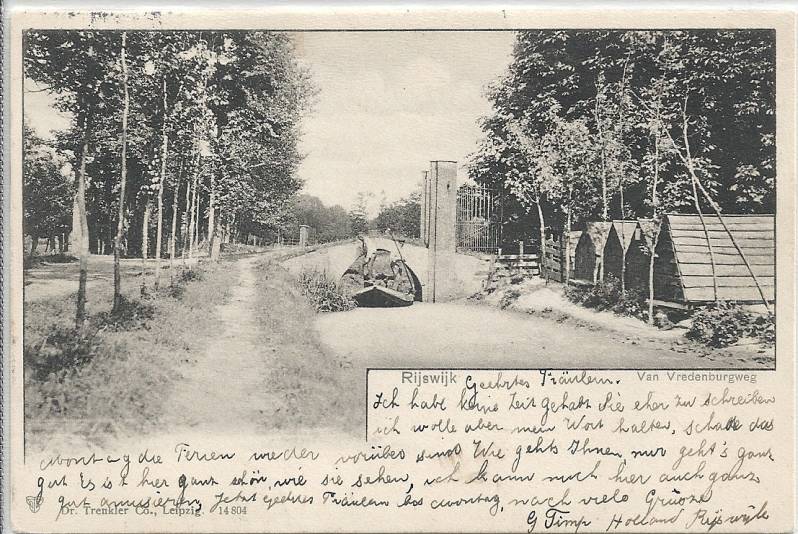 Rijswijk
Van Vredenburgweg
Geehrtes Fräulein.
Ich habe keine Zeit gehabt Sie eher zu schreiben
ich wolle aber mein Wort halten, schade das
die Ferien wieder vorüber sind Wie gehts Ihnen, mir geht's ganz
gut Es ist hier ganz schön, wie sie sehen, ich kann mich hier auch ganz
gut amusieren, Jetzt geehrtes Fräulein bis woontag, nach viele Grüsze
G Timp Holland Rijswijk
Dr. Trenkler Co., Leipzig. 14804